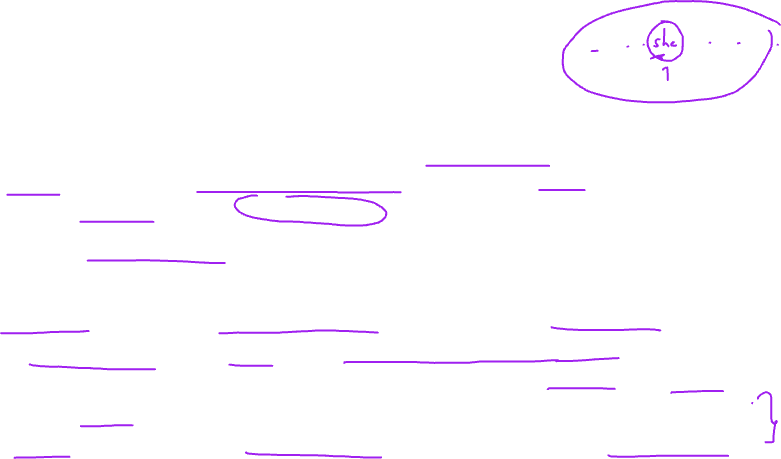 she
1